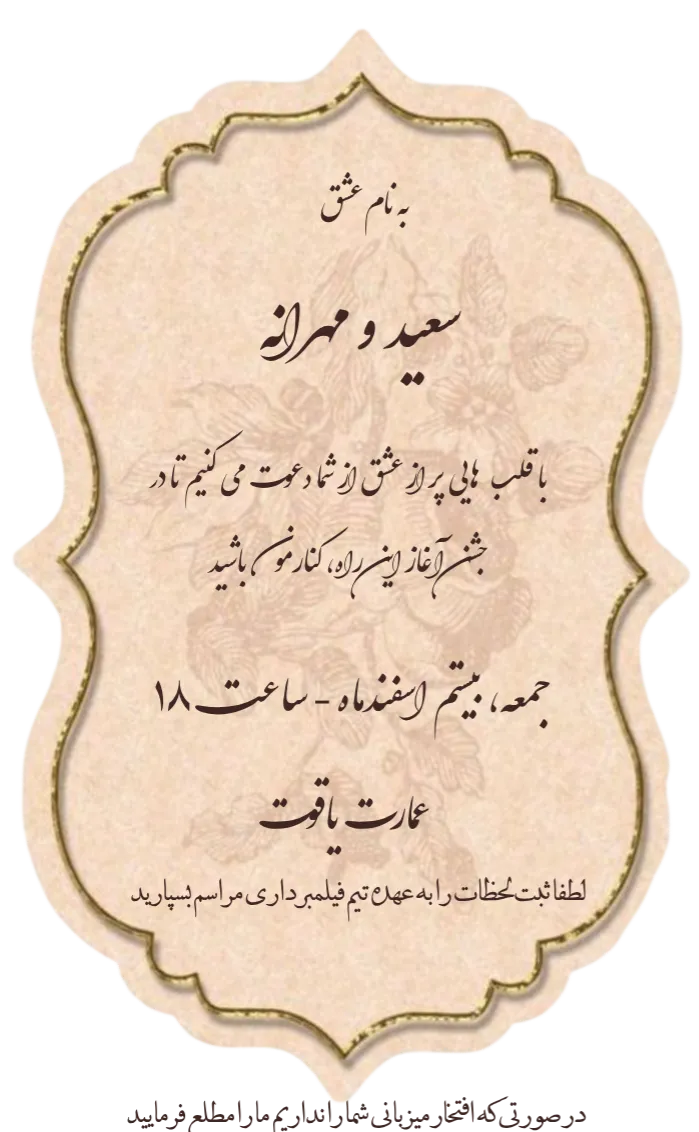 به نام عشق
سعید و مهرانه
با قلب هایی پر از عشق از شما دعوت می کنیم تا در
جشن آغاز این راه، کنارمون باشید
جمعه، بیستم اسفندماه - ساعت ۱۸
عمارت یاقوت
لطفا ثبت لحظات را به عهده تیم فیلمبرداری مراسم بسپارید
در صورتی که افتخار میزبانی شما را نداریم ما را مطلع فرمایید